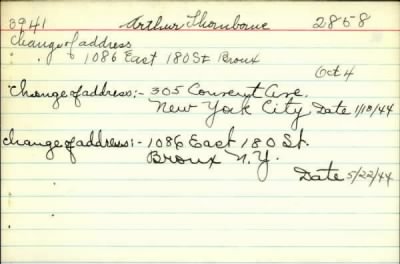 0941 Arthur Thornborne 2858
Change of address
" " 1086 East 180 St Bronx
Oct 4
Change of address:- 305 Convent Ave.
New York City, Date 1/18/44
Change of address:- 1086 East 180 St.
Bronx N.Y.
Date 5/22/44